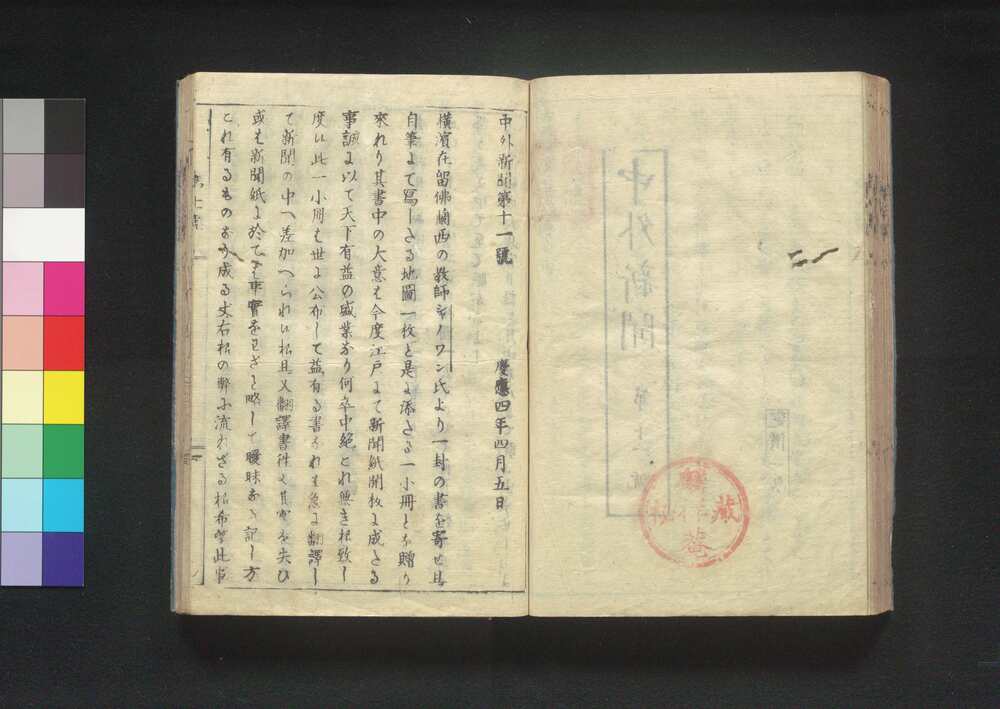 中外新聞第十一號
慶應四年四月五日
横濱在留佛蘭西の教師シノワン氏より一封の書を寄せ且
自筆にて寫したる地圖一枚と是に添たる一小冊とを贈り
來れり其書中の大意も今度江戸にて新聞紙開板に成たる
事誠に以て天下有益の盛業なり何卒中絶これ無き様致し
度い此一小冊も世に公布して益有る書なれも急に翻譯し
て新聞の中へ差加へられい様且又翻譯書件々其實を失ひ
或も新聞紙に於ても事實をわざと略して曖昧なる記し方
これ有るものあり成る丈右様の弊に流れざる様希望此
中外新聞
第十一號
藏